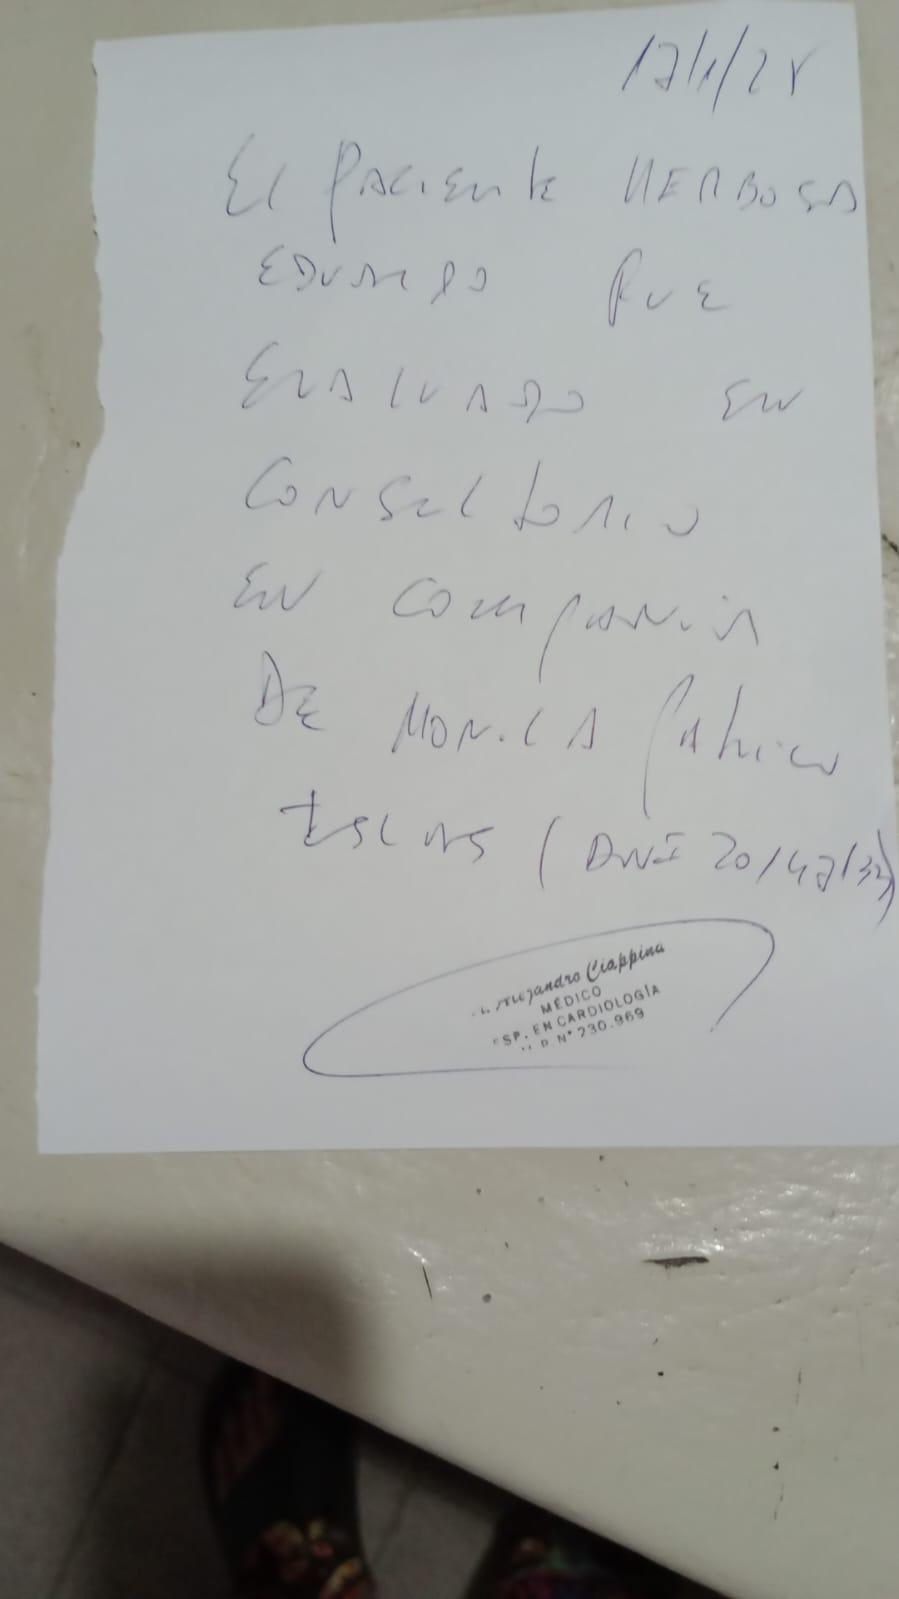 17/1/24
El PACIENTE HERBOSA
EDUARDO FUE
EVALUADO EN
CONSULTORIO
EN COMPAÑIA
DE MONICA
(DNI 20/47/33)
Alejandro Ciappina
MÉDICO
ESP. EN CARDIOLOGÍA
N° 230.969